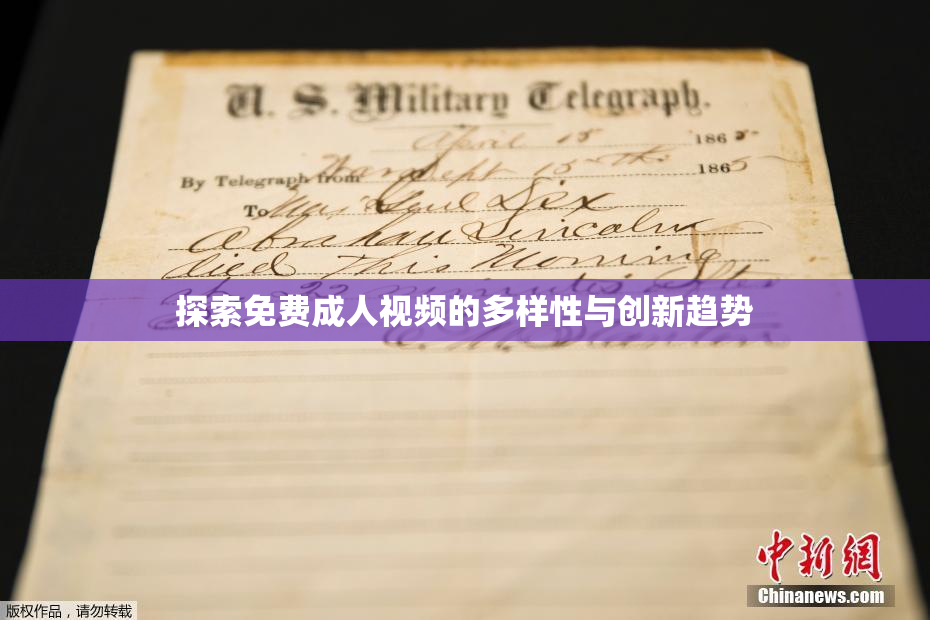 U. S. Military Telegraph.
April 15 1865
By Telegraph from War Dept 15th 1865
To Maj Genl Dix
Abraham Lincoln
died This Morning
at 22 minutes after
探索免费成人视频的多样性与创新趋势
E. M. Stanton
中新網
Chinanews.com
版权作品，请勿转载